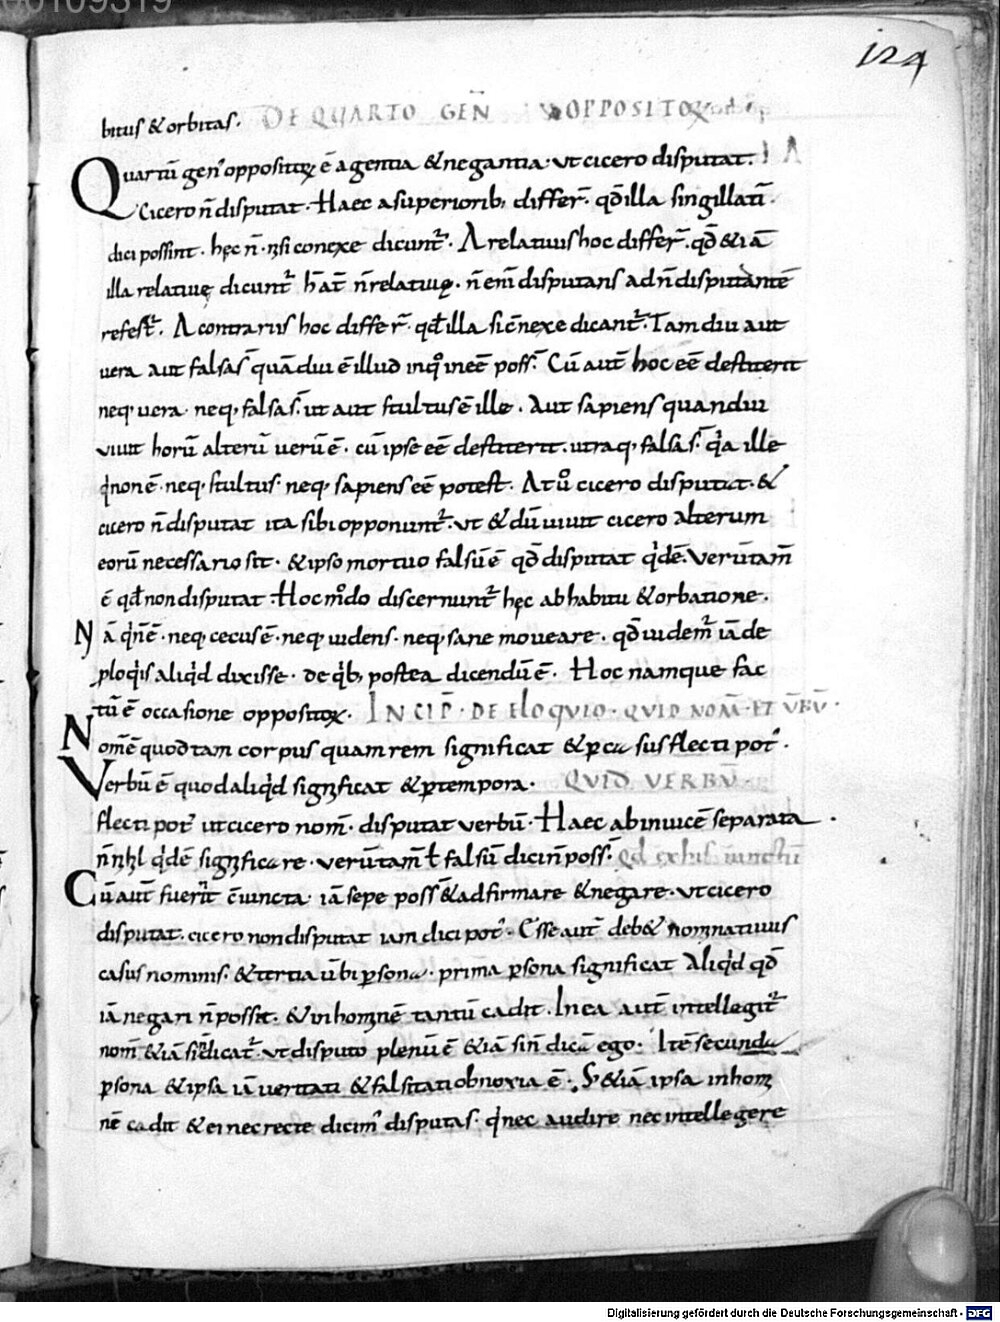 00109319
124
bitus & orbitas. DE QUARTO GEÑ OPPOSITOꝜ
Quartū gen' oppositoꝝ ē agentia & negantia· ut cicero disputat.
Cicero ñ disputat. Haec a superiorib; differ̄. qđ illa singillatī
dici possint. hęc ñ nisi conexe dicunt̄. A relatiuis hoc differ̄. qđ & iā
illa relatiuę dicunt̄ h̄ aūt ñ relatiuę. ñ enī disputans ad ñ disputantē
refert̄. A contrariis hoc differ̄. qđ illa si cñexe dicant̄. Tamdiu aut
uera aut falsa s̄ quādiu ē illud inq° ineē poss̄. Cū aut̄ hoc eē destiterit
neq; uera neq; falsa s̄. ut aut stultus ē ille. Aut sapiens quandiu
uiuit horū alterū uerū ē. cū ipse eē destiterit. utraq; falsa s̄. q̇a ille
q̇ non ē. neq; stultus neq; sapiens eē potest. At ū° cicero disputat. &
cicero ñ disputat ita sibi opponunt̄. ut & dū uiuit cicero alterum
eorū necessario sit. & ipso mortuo falsū ē qđ disputat q̇dē. Verūtam̄
ē qđ non disputat. Hoc m°do discernunt̄ hęc ab habitu & orbatione.
Nā q̇ ñ ē. neq; cecus ē. neq; uidens. neq; sane moueare. qđ uidem̄ iā de
ploq̇is aliq̇d dixisse. de q̇b; postea dicendū ē. Hoc namque fac
tū ē occasione oppositoꝝ. INCIP̄. DE ELOQUIO. QUID NOM̄. ET ŪBŪ.
Nomē ē quod tam corpus quam rem significat & p casus flecti pot̄.
Verbū ē quod aliq̇d significat & p tempora. QUID VERBŪ
flecti pot̄ ut cicero nom̄. disputat verbū. Haec ab inuicē separata.
ñ nihil q̇dē significare. verūtam̄ ł falsū dici ñ poss̄. Qđ ex his iunctū
Cū aut̄ fuerīt c̄iuncta. iā sepe poss̄ & adfirmare & negare. ut cicero
disputat. cicero non disputat iam dici pot̄. Esse aut̄ deb& nominatiuus
casus nominis. & tertia ūbi psona. prima psona significat aliq̇d qđ
iā negari ñ possit. & in hominē tantū cadit. In ea aut̄ intellegit̄
nom̄ & iā si ñ dicat̄. ut disputo plenū ē & iā si ñ dicā ego. Itē secunda
psona & ipsa iā ueritati & falsitati obnoxia ē. S; & iā ipsa in homi
nē cadit & ei nec recte dicim' disputas. q̇ nec audire nec intellegere
Digitalisierung gefördert durch die Deutsche Forschungsgemeinschaft - DFG